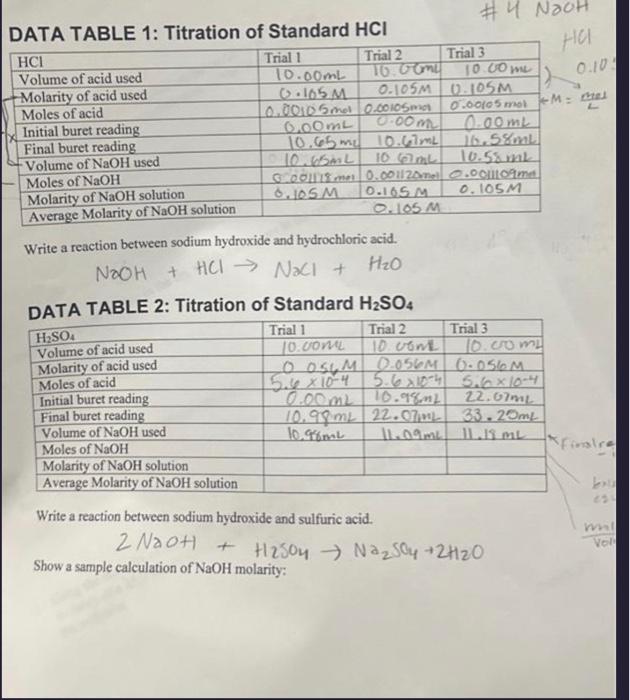 # 4 NaOH
DATA TABLE 1: Titration of Standard HCl
HCl
HCl Trial 1 Trial 2 Trial 3
Volume of acid used 10.00mL 10.00mL 10.00 mL 0.10
Molarity of acid used 0.105M 0.105M 0.105M
Moles of acid 0.00105mol 0.00105mol 0.00105mol ←M= mol/L
Initial buret reading 0.00mL 0.00m 0.00mL
Final buret reading 10.65mL 10.67mL 10.58mL
Volume of NaOH used 10.65mL 10.67mL 10.58mL
Moles of NaOH 0.001118mol 0.001120mol 0.001109mol
Molarity of NaOH solution 0.105M 0.105M 0.105M
Average Molarity of NaOH solution 0.105M
Write a reaction between sodium hydroxide and hydrochloric acid.
NaOH + HCl → NaCl + H2O
DATA TABLE 2: Titration of Standard H₂SO₄
H₂SO₄ Trial 1 Trial 2 Trial 3
Volume of acid used 10.00mL 10.00mL 10.00mL
Molarity of acid used 0.056M 0.056M 0.056M
Moles of acid 5.6 x 10-4 5.6 x 10-4 5.6 x 10-4
Initial buret reading 0.00mL 10.98mL 22.07mL
Final buret reading 10.98mL 22.07mL 33.20mL
Volume of NaOH used 10.98mL 11.09mL 11.13mL
Moles of NaOH
Molarity of NaOH solution
Average Molarity of NaOH solution
Write a reaction between sodium hydroxide and sulfuric acid.
2 NaOH + H2SO4 → Na2SO4 + 2H2O
Show a sample calculation of NaOH molarity: